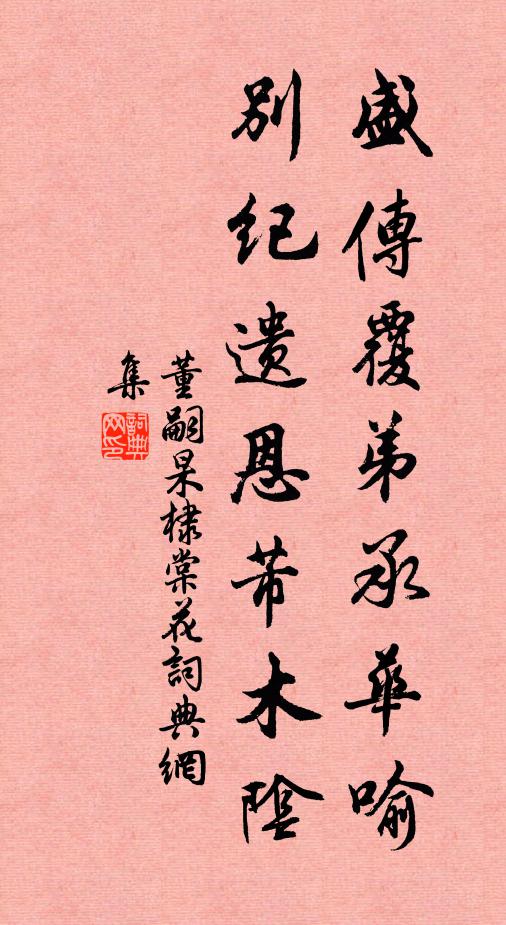 盛傳覆弟承華喻
別纪遗恩芾木陰
董嗣杲棣棠花詞典網
集
詞典网印